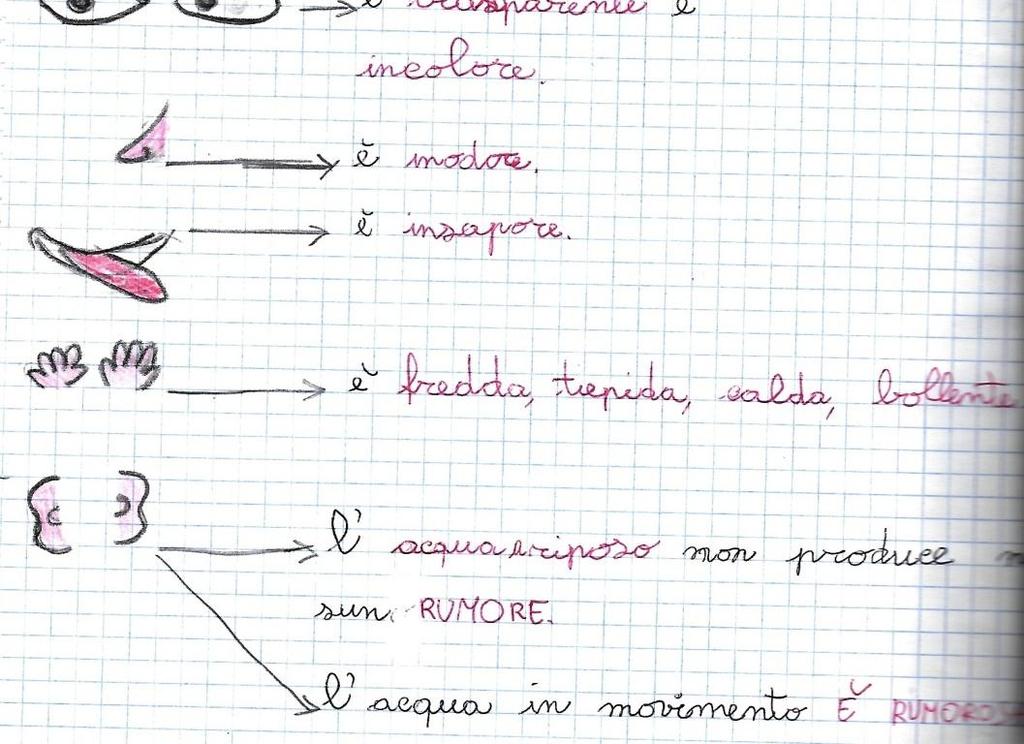 è trasparente e
incolore.
è inodore.
è insapore.
è fredda, tiepida, calda, bollente
l' acqua a riposo non produce n
sun RUMORE.
l' acqua in movimento È RUMOROS